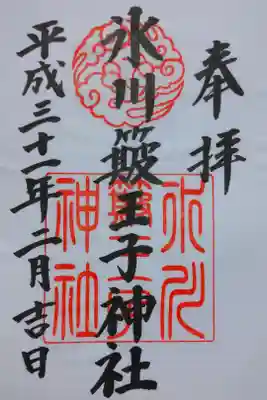 奉拝
氷川簸王子神社
平成三十一年二月吉日
氷川
神社